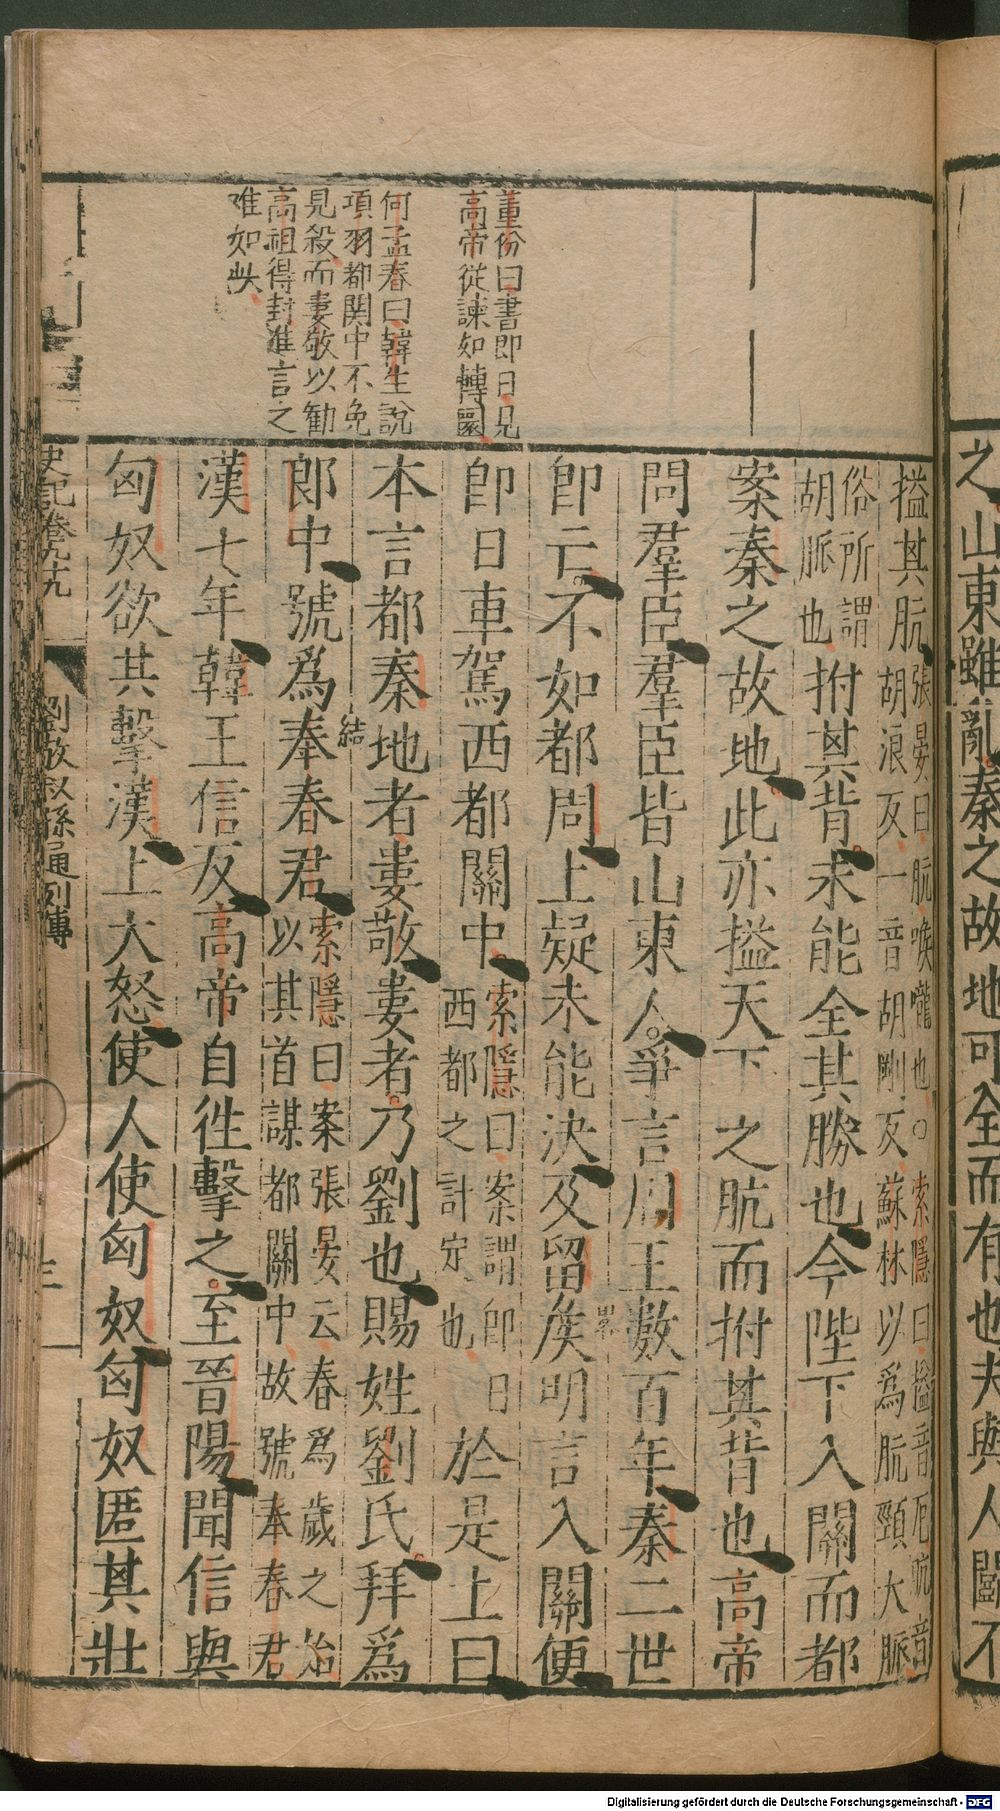 之山東雖亂秦之故地可全而有也夫與人鬭不
董份曰書即日見
高帝從諫如轉圜
何孟春曰韓生說
項羽都関中不免
見殺而婁敬以勸
高祖得封進言之
难如此
搤其肮張晏曰肮喉嚨也○索隱曰搤音厄肮音
胡浪反一音胡剛反蘇林以爲肮頸大脈
俗所謂
胡脈也拊其背未能全其勝也今陛下入關而都
案秦之故地此亦搤天下之肮而拊其背也高帝
問羣臣羣臣皆山東人爭言周王數百年秦二世
即亡不如都周上疑未能決及留侯明言入關便
即日車駕西都關中索隱曰案謂即日
西都之計定也於是上曰
本言都秦地者婁敬婁者乃劉也賜姓劉氏拜爲
郎中號爲奉春君索隱曰案張晏云春爲歲之始
以其首謀都關中故號奉春君
結
漢七年韓王信反高帝自徃擊之至晉陽聞信與
匈奴欲共擊漢上大怒使人使匈奴匈奴匿其壯
史記卷九十九
劉敬叔孫通列傳
三
Digitalisierung gefördert durch die Deutsche Forschungsgemeinschaft - DFG